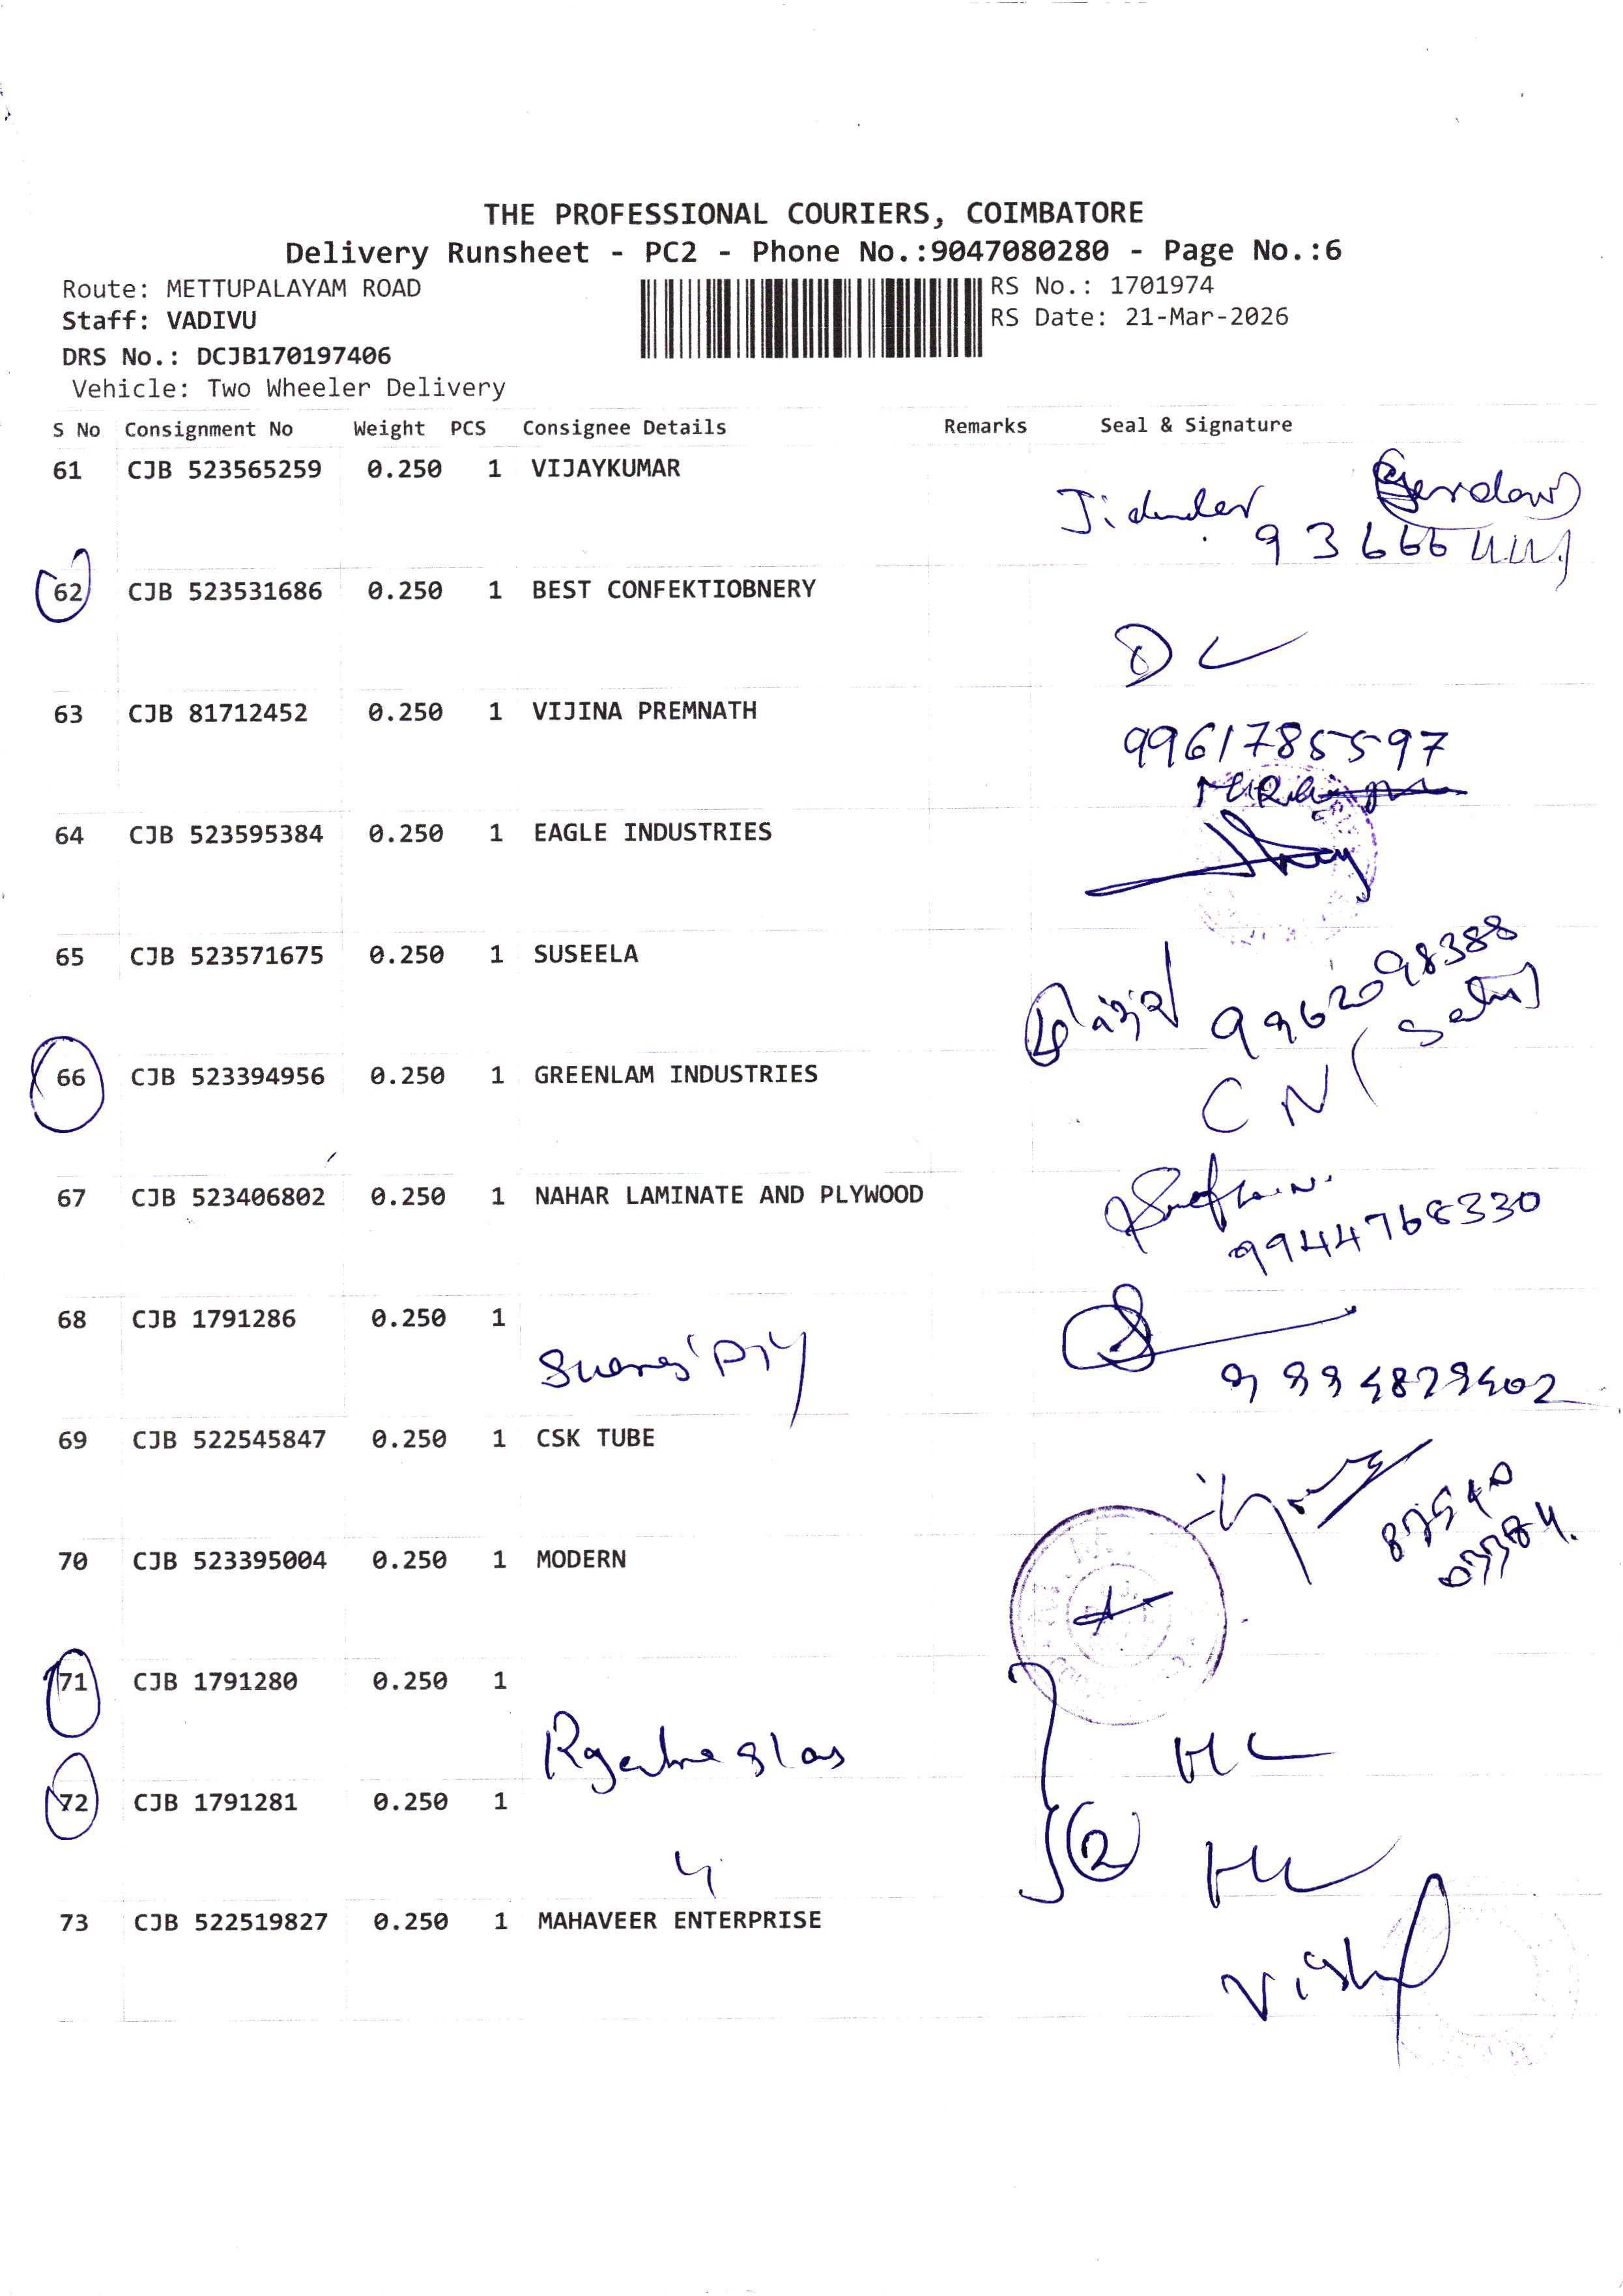 THE PROFESSIONAL COURIERS, COIMBATORE
Delivery Runsheet - PC2 - Phone No.:9047080280 - Page No.:6
Route: METTUPALAYAM ROAD
RS No.: 1701974
Staff: VADIVU
RS Date: 21-Mar-2026
DRS No.: DCJB170197406
Vehicle: Two Wheeler Delivery
S No Consignment No Weight PCS Consignee Details Remarks Seal & Signature
61 CJB 523565259 0.250 1 VIJAYKUMAR
62 CJB 523531686 0.250 1 BEST CONFEKTIOBNERY
DL
63 CJB 81712452 0.250 1 VIJINA PREMNATH
9961785597
64 CJB 523595384 0.250 1 EAGLE INDUSTRIES
65 CJB 523571675 0.250 1 SUSEELA
9962098388
66 CJB 523394956 0.250 1 GREENLAM INDUSTRIES
CN
67 CJB 523406802 0.250 1 NAHAR LAMINATE AND PLYWOOD
9944768330
68 CJB 1791286 0.250 1
69 CJB 522545847 0.250 1 CSK TUBE
70 CJB 523395004 0.250 1 MODERN
71 CJB 1791280 0.250 1
HL
72 CJB 1791281 0.250 1
2 HL
73 CJB 522519827 0.250 1 MAHAVEER ENTERPRISE